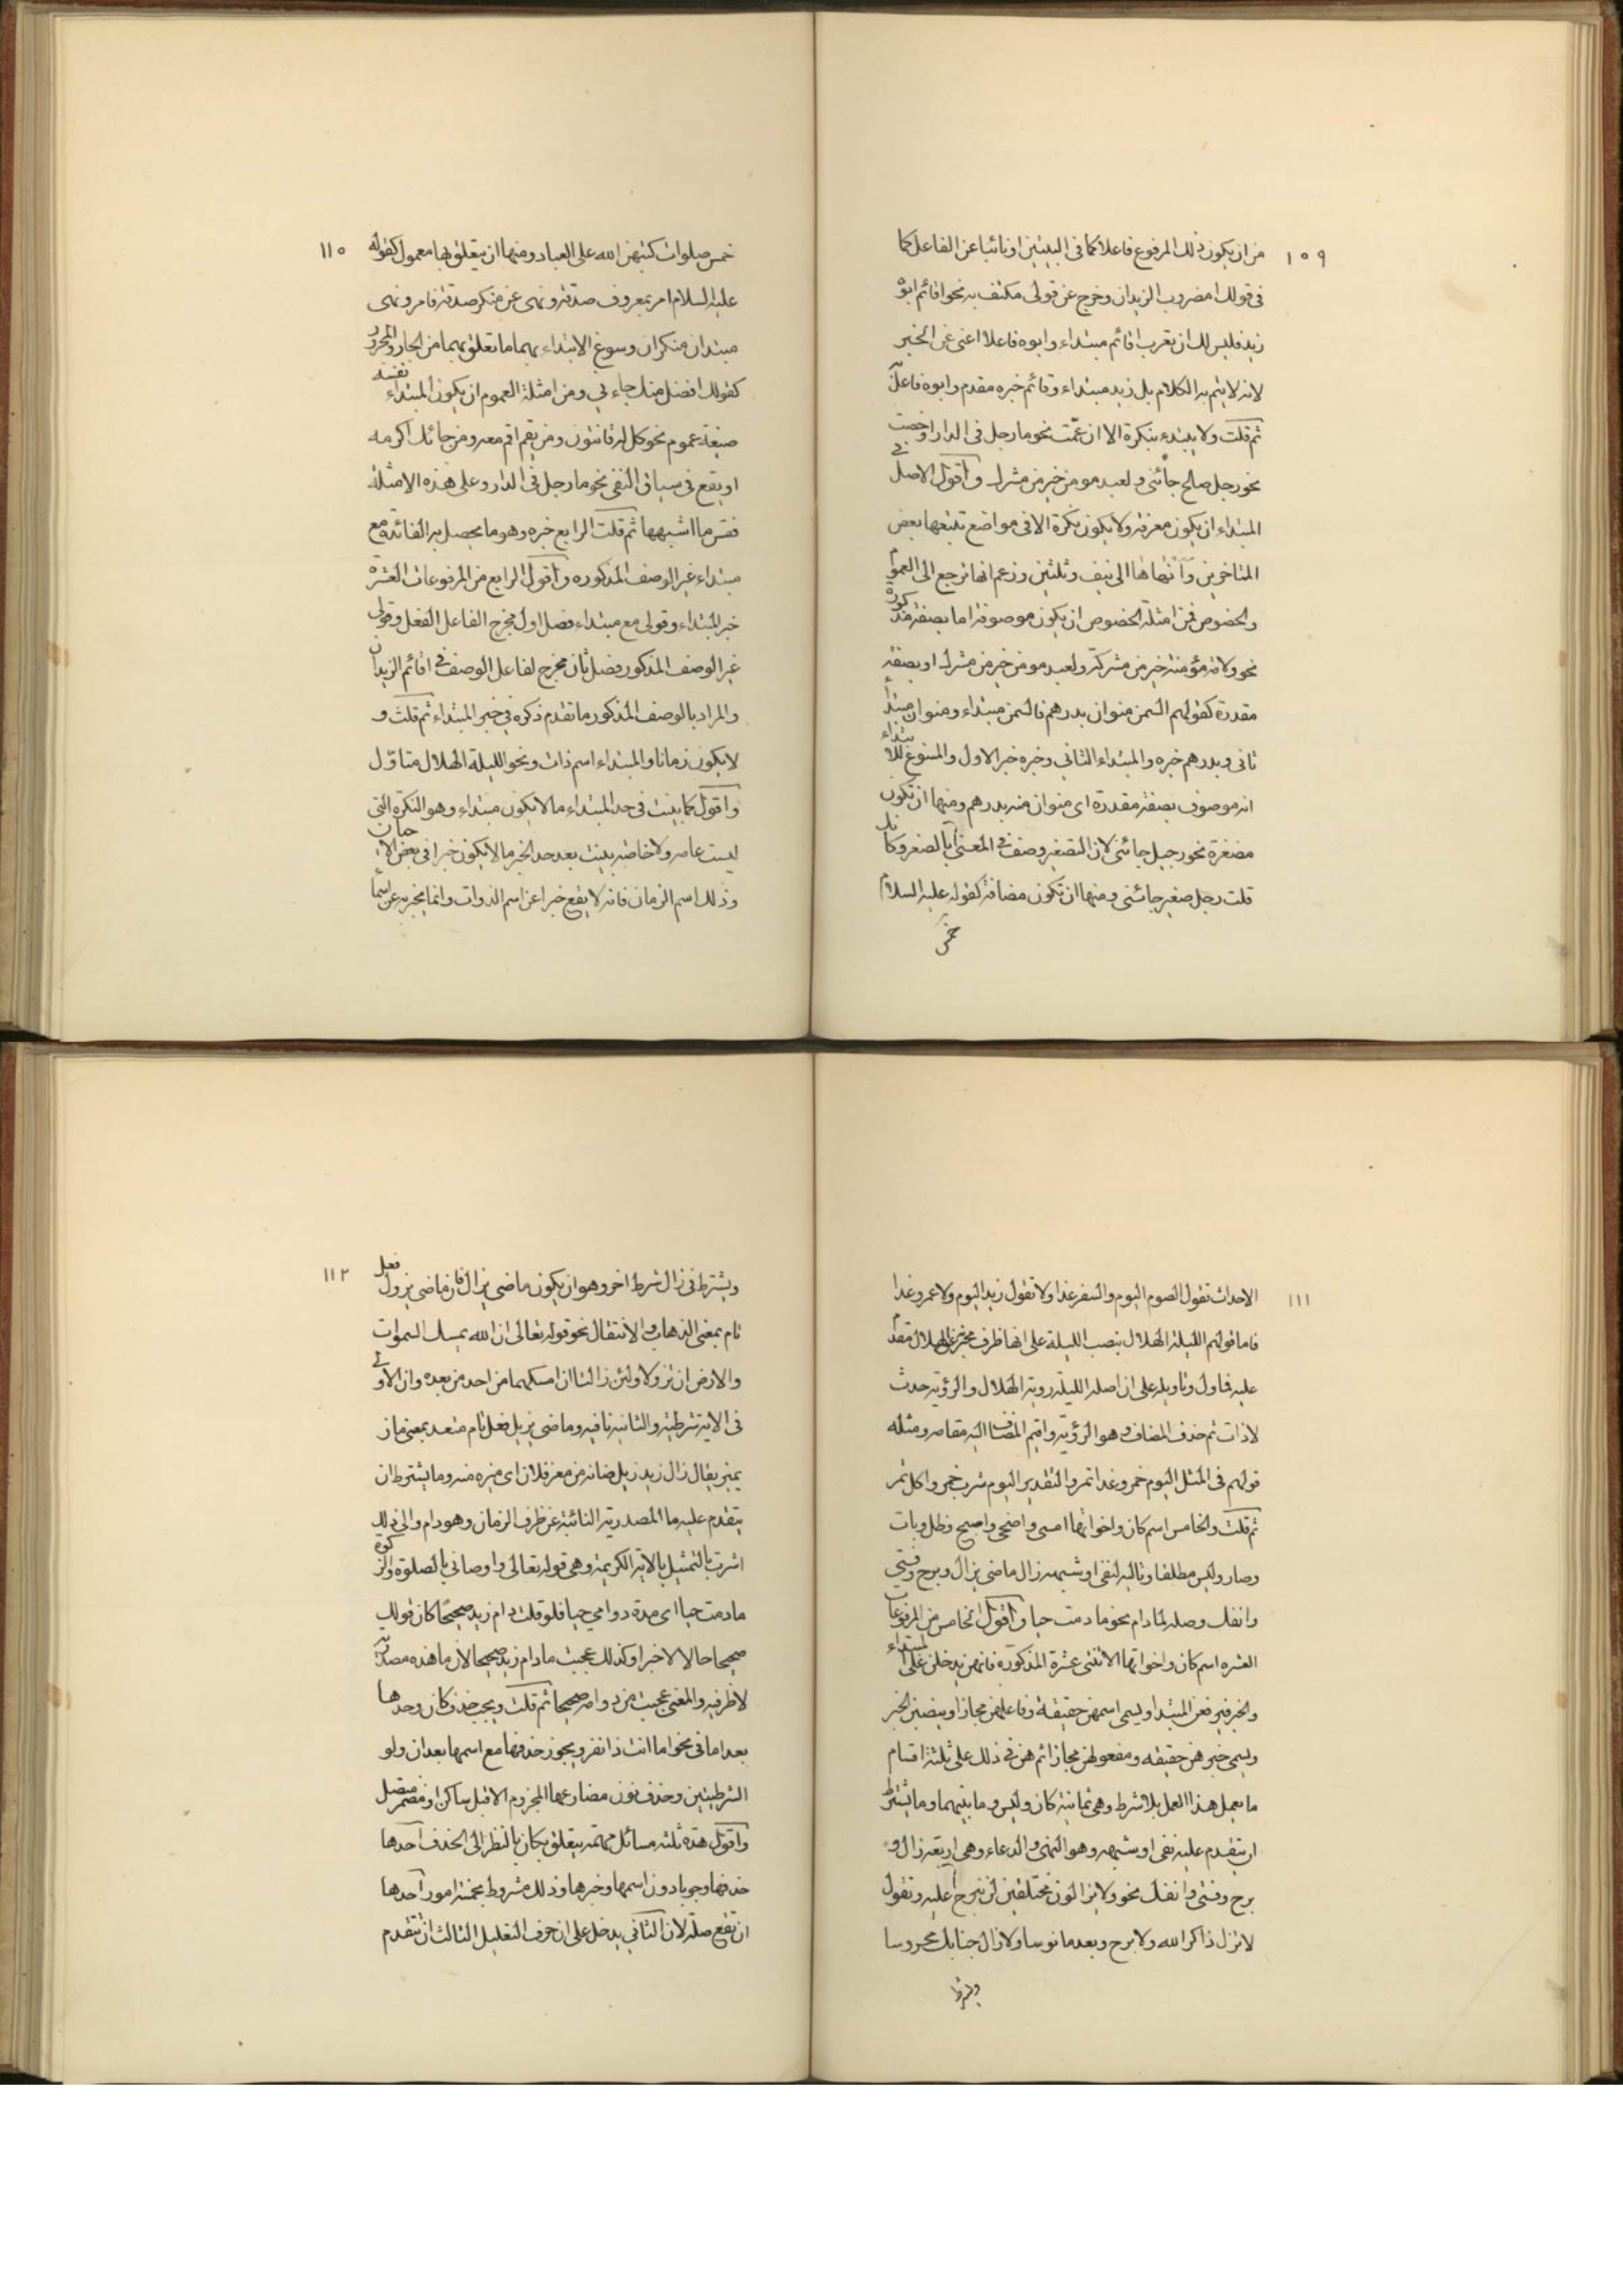 ١٠٩
من ان يكون ذلك المرفوع فاعلا كما في البيتين او نائبا عن الفاعل كما
في قولك امضروب الزيدان وخرج عن قولي مكتف به نحو اقائم ابوه
زيد فليس لك ان تعرب اقائم مبتداء وابوه فاعلا اغنى عن الخبر
لانه لا يتم به الكلام بل زيد مبتداء وقائم خبره مقدم وابوه فاعل
ثم قلت ولا يبتدء بنكرة الا ان عمّت نحو ما رجل في الدار او خصت
نحو رجل صالح جائني ولعبد مومن خير من مشرك واقول الاصل في
المبتداء ان يكون معرفة ولا يكون نكرة الا في مواضع تتبعها بعض
المتاخرين وانهاها الى نيف وثلثين وزعم انها ترجع الى العموم
والخصوص فمن امثلة الخصوص ان يكون موصوفة اما بصفة مذكورة
نحو ولامة مؤمنة خير من مشركة ولعبد مومن خير من مشرك او بصفة
مقدرة كقولهم السمن منوان بدرهم فالسمن مبتداء ومنوان مبتداء
ثاني وبدرهم خبره والمبتداء الثاني وخبره خبر الاول والمسوغ للابتداء
انه موصوف بصفة مقدرة اى منوان منه بدرهم ومنها ان تكون
مصغرة نحو رجيل جائني لان التصغير وصف في المعنى بالصغر وكانك
قلت رجل صغير جائني ومنها ان تكون مضافة كقوله عليه السلام
خمس
١١٠
خمس صلوات كتبهن الله على العباد ومنها ان يتعلق بها معمول كقوله
عليه السلام امر بمعروف صدقة ونهى عن منكر صدقة فامر ونهى
مبتدان منكران وسوغ الابتداء بهما ما تعلق بهما من الجار والمجرور
كقولك افضل منك جاءني ومن امثلة العموم ان يكون المبتداء نفسه
صيغة عموم نحو كل له قانتون ومن يقم اقم معه ومن جائك اكرمه
او يقع في سياق النفى نحو ما رجل في الدار وعلى هذه الامثلة
فقس ما اشبهها ثم قلت الرابع خبره وهو ما يحصل به الفائدة مع
مبتداء غير الوصف المذكوره واقول الرابع من المرفوعات العشرة
خبر المبتداء وقولى مع مبتداء فصل اول مخرج الفاعل الفعل وقولى
غير الوصف المذكور فصل ثان مخرج لفاعل الوصف في اقائم الزيدان
والمراد بالوصف المذكور ما تقدم ذكره في خبر المبتداء ثم قلت و
لا يكون زمانا والمبتداء اسم ذات ونحو الليلة الهلال متاوّل
واقول كما بينت في حد المبتداء ما لا يكون مبتداء وهو النكرة التى
ليست عامه ولا خاصة بينت بعد حد الخبر ما لا يكون خبرا في بعض الاحيان
وذلك اسم الزمان فانه لا يقع خبرا عن اسم الذوات وانما يخبر به عن اسماء
١١١
الاحداث تقول الصوم اليوم والسفر غدا ولا تقول زيد اليوم ولا عمرو غدا
فاما قولهم الليلة الهلال بنصب الليلة على انها ظرف مخبر عن الهلال مقدم
عليه فماول وتاويله على ان اصله الليلة روية الهلال والرؤية حدث
لا ذات ثم حذف المضاف وهو الرؤية واقيم المضاف اليه مقامه ومثله
قولهم في المثل اليوم خمر وغدا تمر والتقدير اليوم شرب خمر واكل تمر
ثم قلت والخامس اسم كان واخواتها امسى واضحى واصبح وظل وبات
وصار وليس مطلقا وتالية لنفى او شبهه زال ماضى يزال وبرح وفتى
وانفك وصله لما دام نحو ما دمت حيا واقول الخامس من المرفوعات
العشره اسم كان واخواتها الاثنتى عشرة المذكورة فانهن يدخلن على المبتداء
والخبر فيرفعن المبتدا ويسمى اسمهن حقيقة وفاعلهن مجازا وينصبن الخبر
ويسمى خبرهن حقيقه ومفعولهن مجازا ثم هن في ذلك على ثلثة اقسام
ما يعمل هذا العمل بلا شرط وهى ثمانية كان وليس وما بينهما وما يشترط
ان يتقدم عليه نفى او شبهه وهو النهى والدعاء وهى اربعة زال و
برح وفتى وانفك نحو ولا يزالون مختلفين لن نبرح عليه وتقول
لا تزل ذاكر الله ولا برح وبعد مانوسا ولا زال جنابك محروسا
ويشترط
١١٢
ويشترط في زال شرط اخر وهو ان يكون ماضى يزال فان ماضى يزول فعل
تام بمعنى الذهاب والانتقال نحو قوله تعالى ان الله يمسك السموات
والارض ان تزولا ولئن زالتا ان امسكهما من احد من بعده وان الاولى
في الاية شرطية والثانية نافيه وماضى يزيل فعل تام متعد بمعنى ماز
يميز يقال زال زيد زيل ضانه من معز فلان اى ميزه منه وما يشترط ان
يتقدم عليه ما المصدرية النائبة عن ظرف الزمان وهو دام والى ذلك
اشرت بالتمثيل بالاية الكريمة وهى قوله تعالى واوصاني بالصلوة والزكوة
ما دمت حيا اى مدة دوامي حيا فلو قلت دام زيد صحيحًا كان قولك
صحيحا حالا لا خبرا وكذلك عجبت ما دام زيد صحيحا لان ما هذه مصدرية
لا ظرفيه والمعنى عجبت من دوامه صحيحا ثم قلت ويجب حذف كان وحدها
بعد اما في نحو اما انت ذا نفر ويجوز حذفها مع اسمها بعد ان ولو
الشرطيتين وحذف نون مضارعها المجزوم الا قبل ساكن او مضمر متصل
واقول هذه ثلثه مسائل مهمة يتعلق بكان بالنظر الى الحذف احدها
حذفها وجوبا دون اسمها وخبرها وذلك مشروط بخمسة امور احدها
ان تقع صلة لان الثاني يدخل على ان حرف التعليل الثالث ان تتقدم